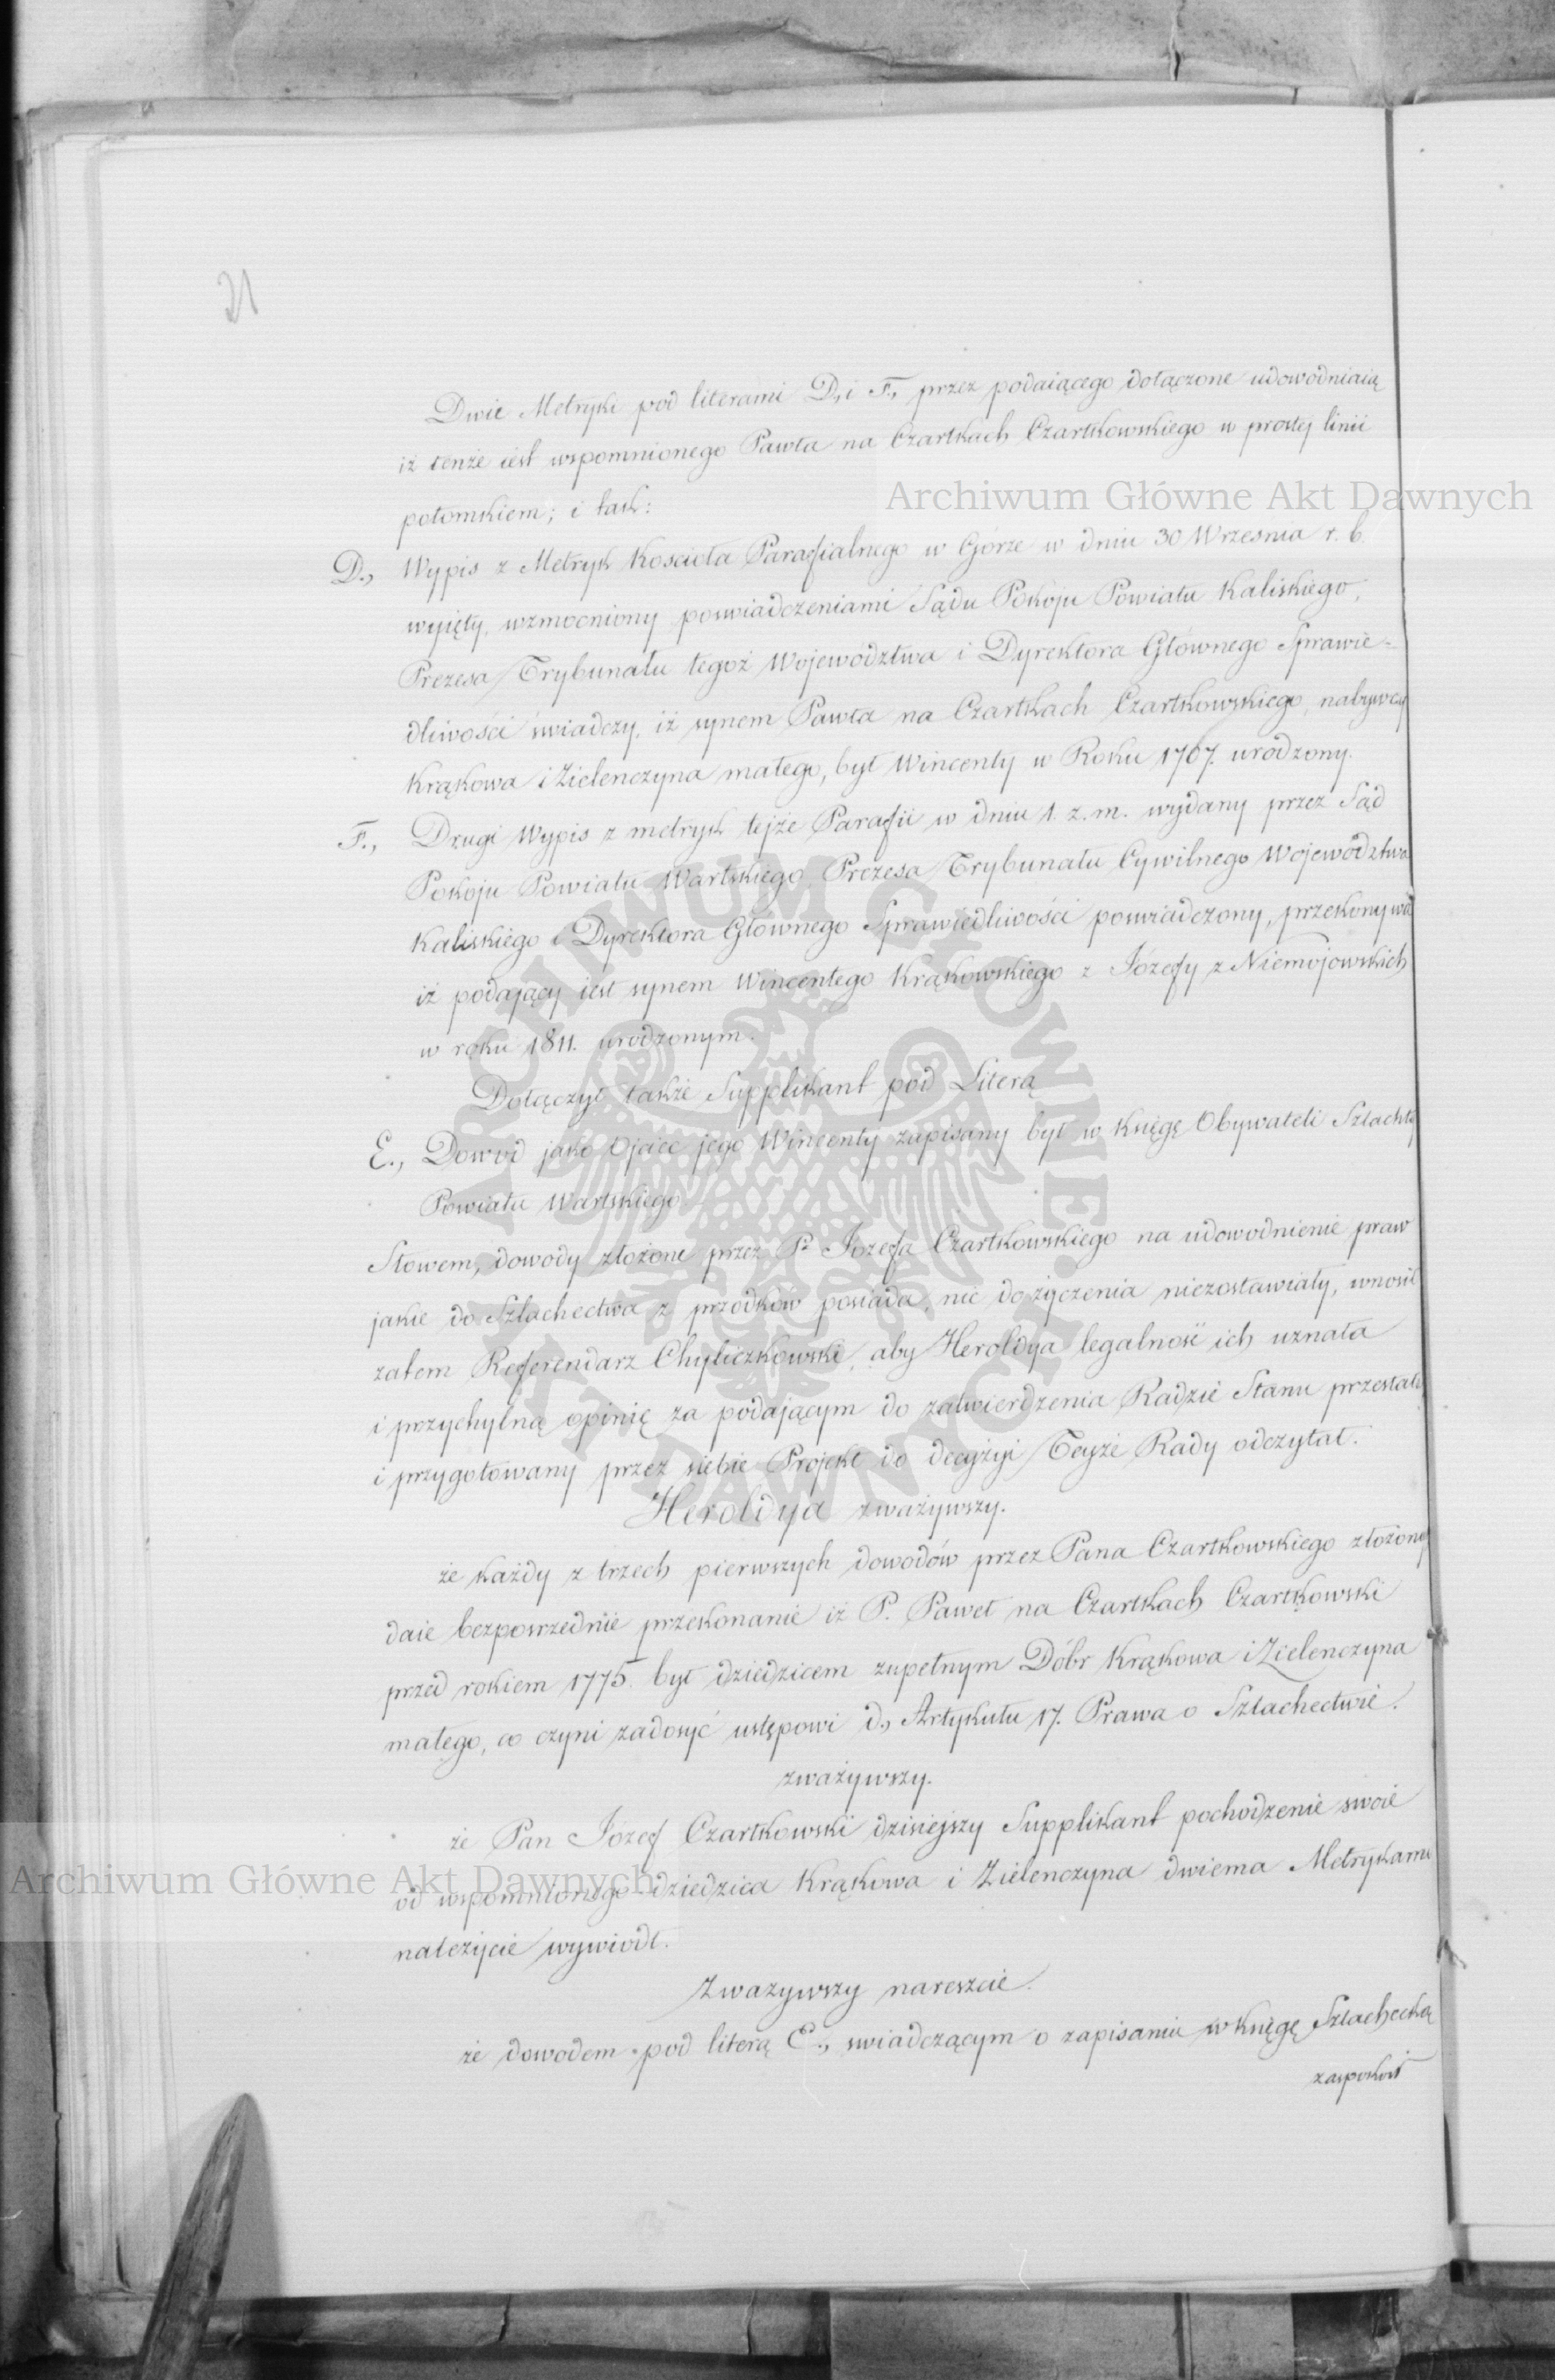 21
Dwie Metryki pod literami D, i F, przez podaiącego dołączone udowodniaią
iż tenże iest wspomnionego Pawła na Czartkach Czartkowskiego w prostej linii
potomkiem; i tak:
D., Wypis z Metryk Kościoła Parafialnego w Górze w dniu 30 Września r. b.
wyięty, wzmocniony poswiadczeniami Sądu Pokoju Powiatu Kaliskiego,
Prezesa Trybunału tegoż Województwa i Dyrektora Głównego Sprawie-
dliwości świadczy, iż synem Pawła na Czartkach Czartkowskiego, nabywcy
Krąkowa i Zielenczyna małego, był Wincenty w Roku 1767. urodzony.
F., Drugi Wypis z metryk tejże Parafii w dniu 1. z. m. wydany przez Sąd
Pokoju Powiatu Wartskiego, Prezesa Trybunału Cywilnego Województwa
Kaliskiego i Dyrektora Głównego Sprawiedliwości poswiadczony, przekonywa
iż podający iest synem Wincentego Krąkowskiego z Józefy z Niemojowskich
w roku 1811. urodzonym.
Dołączył także Supplikant pod Literą
E., Dowód jako Ojciec jego Wincenty zapisany był w Księgę Obywateli Szlachty
Powiatu Wartskiego.
Słowem, dowody złożone przez P. Józefa Czartkowskiego na udowodnienie praw
jakie do Szlachectwa z przodków posiada, nic do życzenia niezostawiały, wnosił
zatem Referendarz Chyliczkowski, aby Heroldya legalność ich uznała
i przychylną opinię za podającym do zatwierdzenia Radzie Stanu przesłała
i przygotowany przez siebie Projekt do decyzyi Teyże Rady odczytał.
Heroldya zważywszy.
że każdy z trzech pierwszych dowodów przez Pana Czartkowskiego złożonej
daie bezposrzednie przekonanie iż P. Paweł na Czartkach Czartkowski
przed rokiem 1775. był dziedzicem zupełnym Dóbr Krąkowa i Zielenczyna
małego, co czyni zadosyć ustępowi d., Artykułu 17. Prawa o Szlachectwie.
zważywszy.
że Pan Józef Czartkowski dzisiejszy Supplikant pochodzenie swoie
od wspomnionego dziedzica Krąkowa i Zielenczyna dwiema Metrykami
należycie wywiódł.
Zważywszy nareszcie.
że dowodem pod literą E., swiadczącym o zapisaniu w Księgę Szlachecką
zaspokoił
Archiwum Główne Akt Dawnych
Archiwum Główne Akt Dawnych
ARCHIWUM GŁÓWNE AKT DAWNYCH